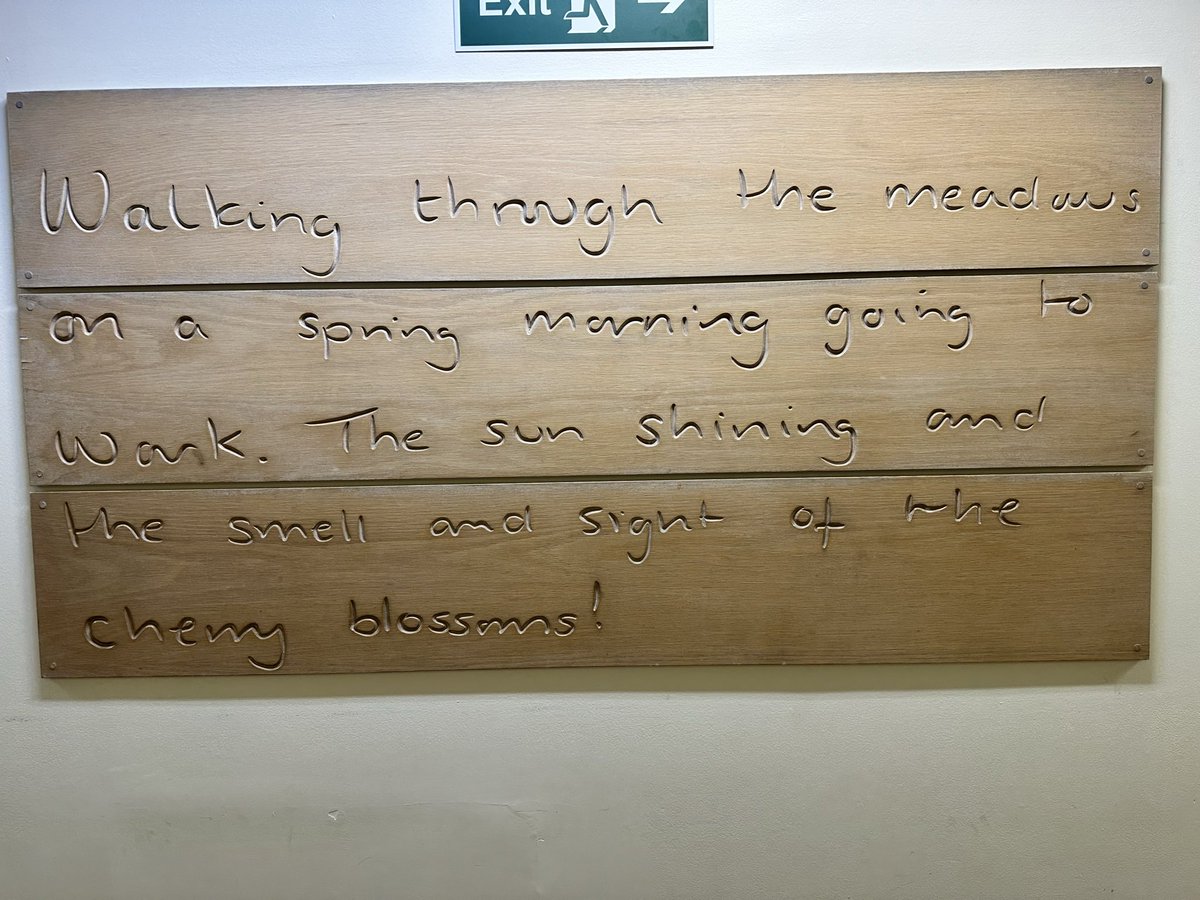 Exit
Walking through the meadows
on a spring morning going to
work. The sun shining and
the smell and sight of the
cherry blossoms!